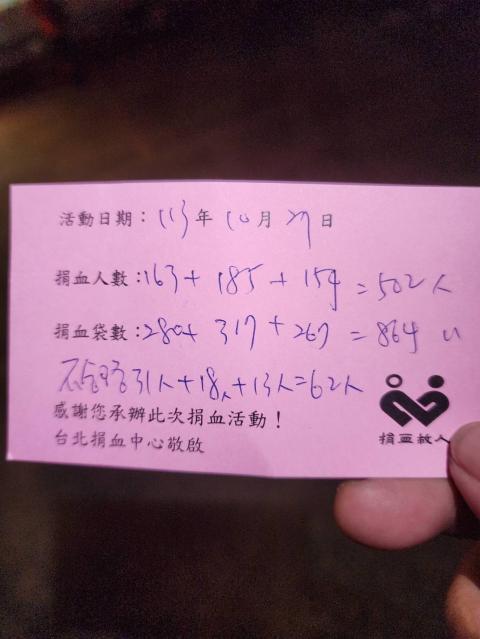 活動日期：113年10月27日
捐血人數：163+185+154=502人
捐血袋數：280+317+267=864 u
不合格31人+18人+13人=62人
感謝您承辦此次捐血活動！
台北捐血中心敬啟
捐血救人